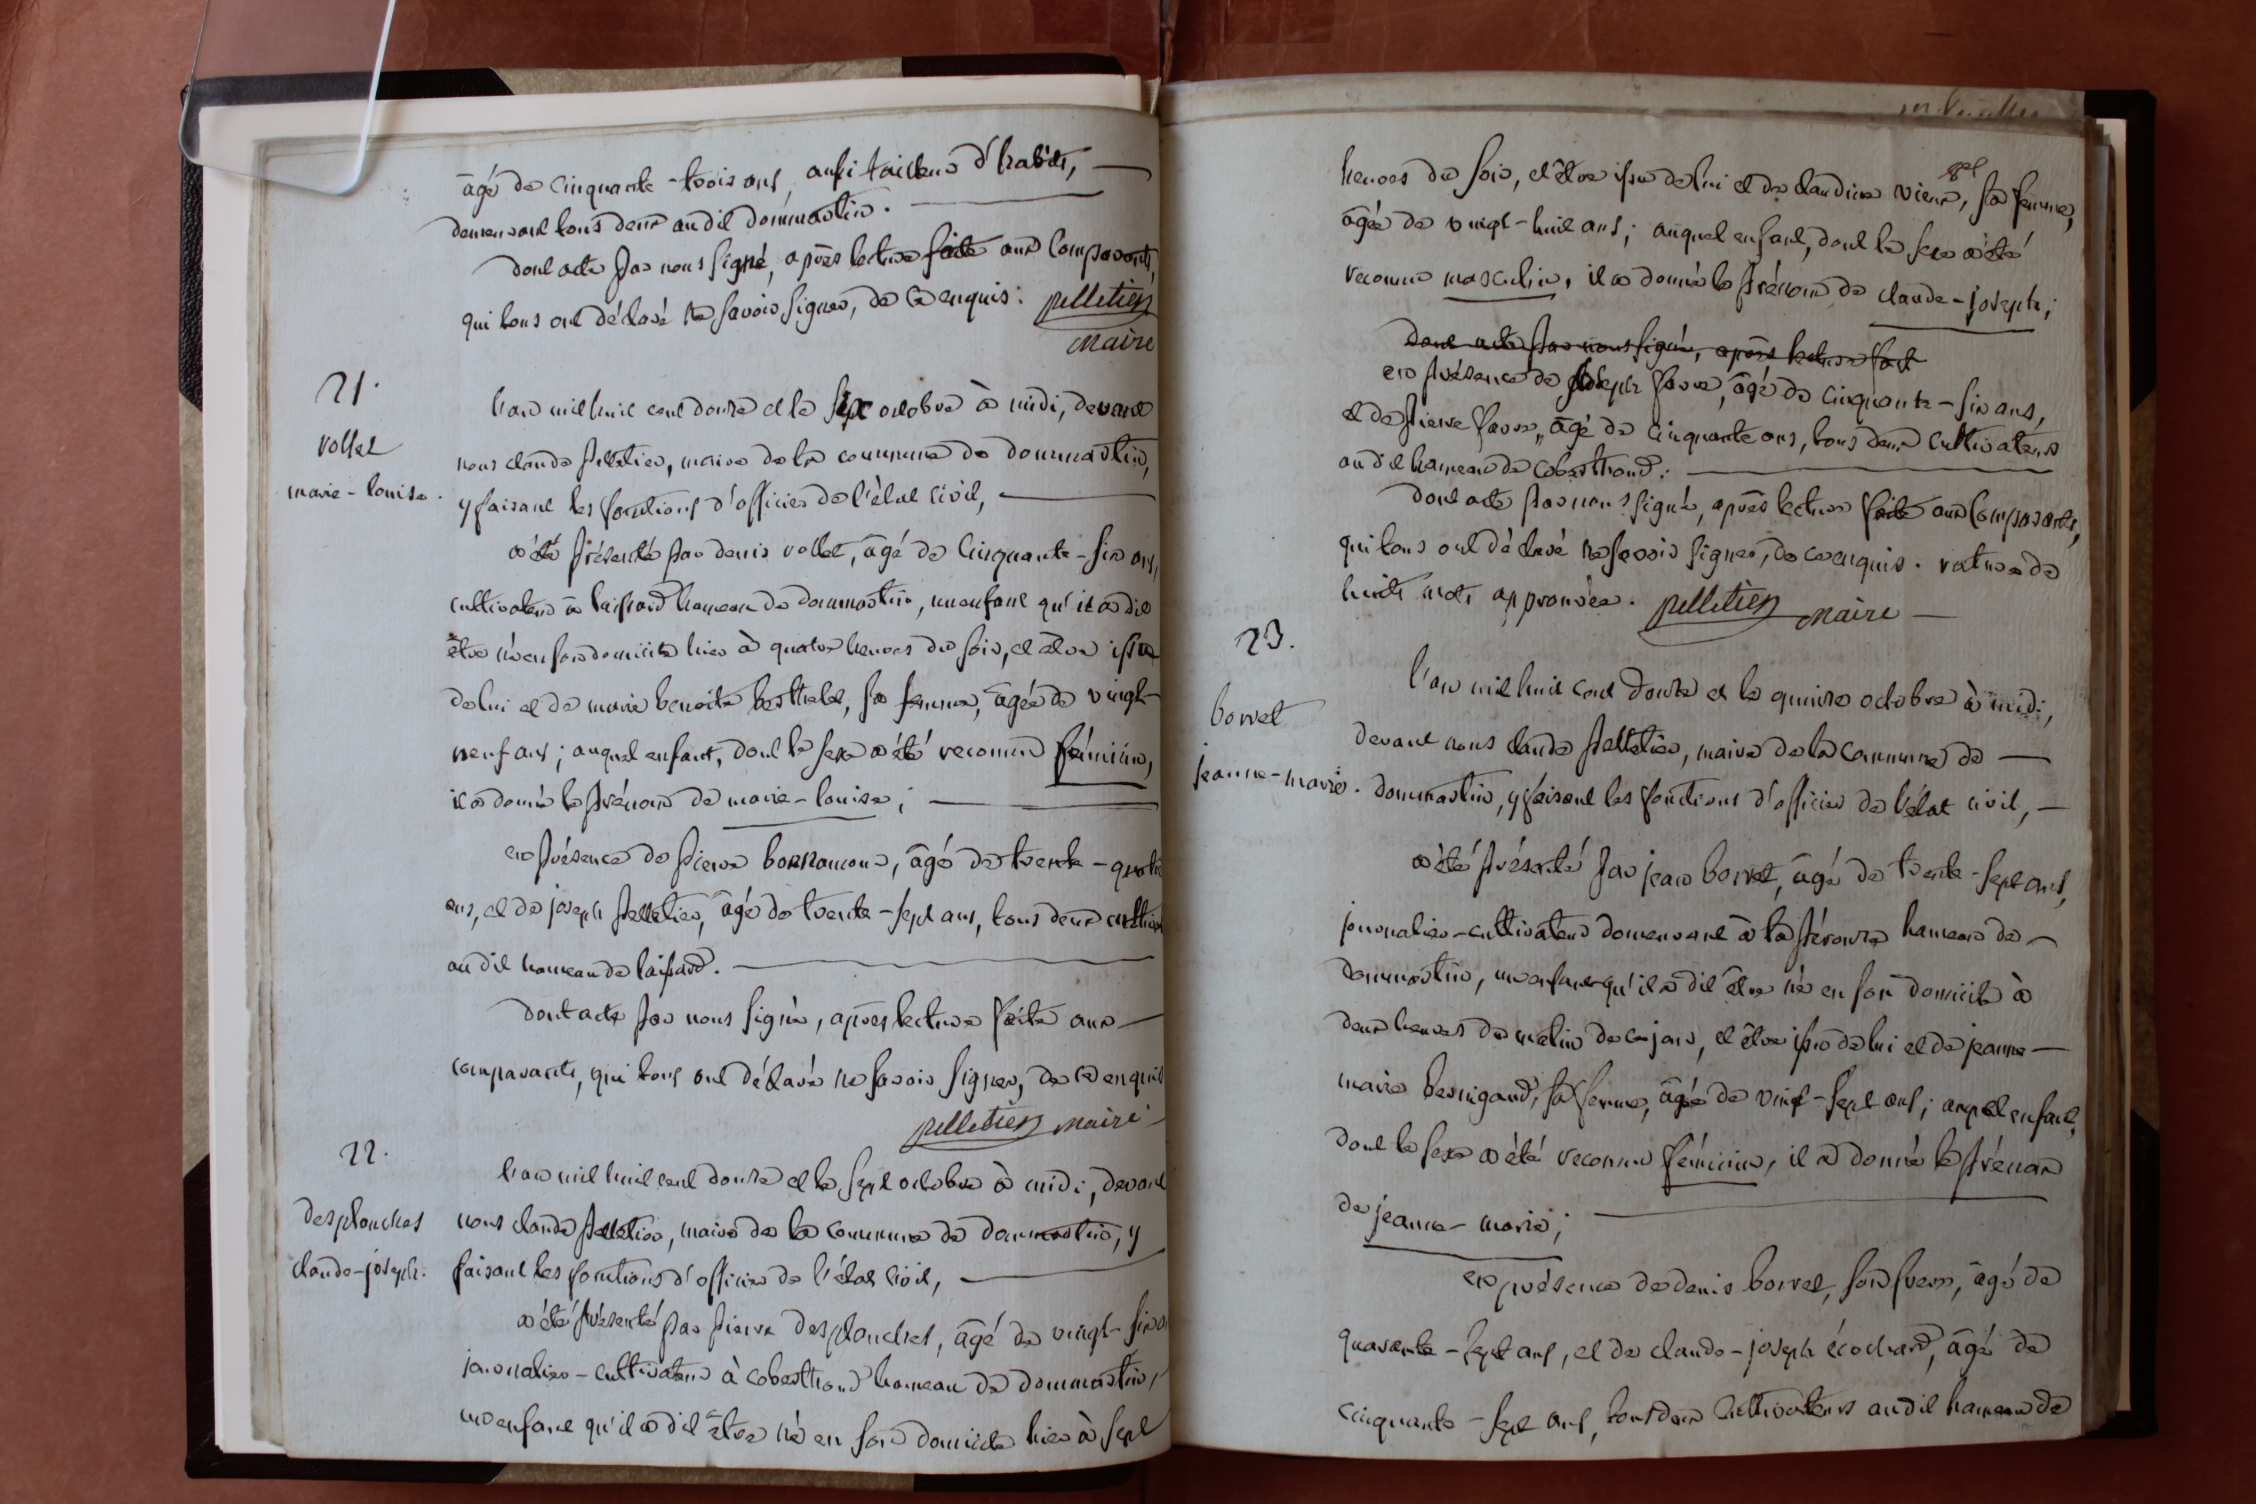 âgé de cinquante-trois ans, aussi tailleur d'habits,
demeurant tous deux audit dommartin.
dont acte par nous signé, après lecture faite aux comparants,
qui tous ont déclaré ne savoir signer, de ce enquis. pelletier
maire
21.
vollet
marie-louise.
l'an mil huit cent douze et le six octobre à midi, devant
nous claude pelletier, maire de la commune de dommartin,
y faisant les fonctions d'officier de l'état civil,
a été présenté par denis vollet, âgé de cinquante-six ans,
cultivateur à laissard hameau de dommartin, un enfant qu'il a dit
être né en son domicile hier à quatre heures du soir, et être issu
de lui et de marie benoite berthelet, sa femme, âgée de vingt
neuf ans; auquel enfant, dont le sexe a été reconnu féminin,
il a donné le prénom de marie-louise;
en présence de pierre bonnamour, âgé de trente-quatre
ans, et de joseph pelletier, âgé de trente-sept ans, tous deux
audit hameau de laissard.
dont acte par nous signé, après lecture faite aux
comparants, qui tous ont déclaré ne savoir signer, de ce enquis
pelletier maire
22.
desplanches
claude-joseph.
l'an mil huit cent douze et le sept octobre à midi, devant
nous claude pelletier, maire de la commune de dommartin, y
faisant les fonctions d'officier de l'état civil,
a été présenté par pierre desplanches, âgé de vingt-six
journalier-cultivateur à cobarthond hameau de dommartin,
un enfant qu'il a dit être né en son domicile hier à sept
heures du soir, et être issu de lui et de claudine sa femme,
âgée de vingt-huit ans; auquel enfant, dont le sexe a été
reconnu masculin, il a donné le prénom de claude-joseph;
dont acte par nous signé, après lecture fait
en présence de joseph favre, âgé de cinquante-six ans,
et de pierre favre, âgé de cinquante ans, tous deux cultivateurs
audit hameau de cobarthond.
dont acte par nous signé, après lecture faite aux comparants,
qui tous ont déclaré ne savoir signer, de ce enquis. rature de
huit mots approuvée. pelletier maire
23.
borvet
jeanne-marie.
l'an mil huit cent douze et le quinze octobre à midi,
devant nous claude pelletier, maire de la commune de
dommartin, y faisant les fonctions d'officier de l'état civil,
a été présenté par jean borvet, âgé de trente-sept ans,
journalier-cultivateur demeurant à la hameau de
dommartin, un enfant qu'il a dit être né en son domicile à
deux heures du matin de ce jour, et être issu de lui et de jeanne
marie sa femme, âgée de vingt-sept ans; auquel enfant,
dont le sexe a été reconnu féminin, il a donné le prénom
de jeanne-marie;
en présence de denis borvet, son frère, âgé de
quarante-sept ans, et de claude-joseph écochard, âgé de
cinquante-sept ans, tous deux cultivateurs audit hameau de